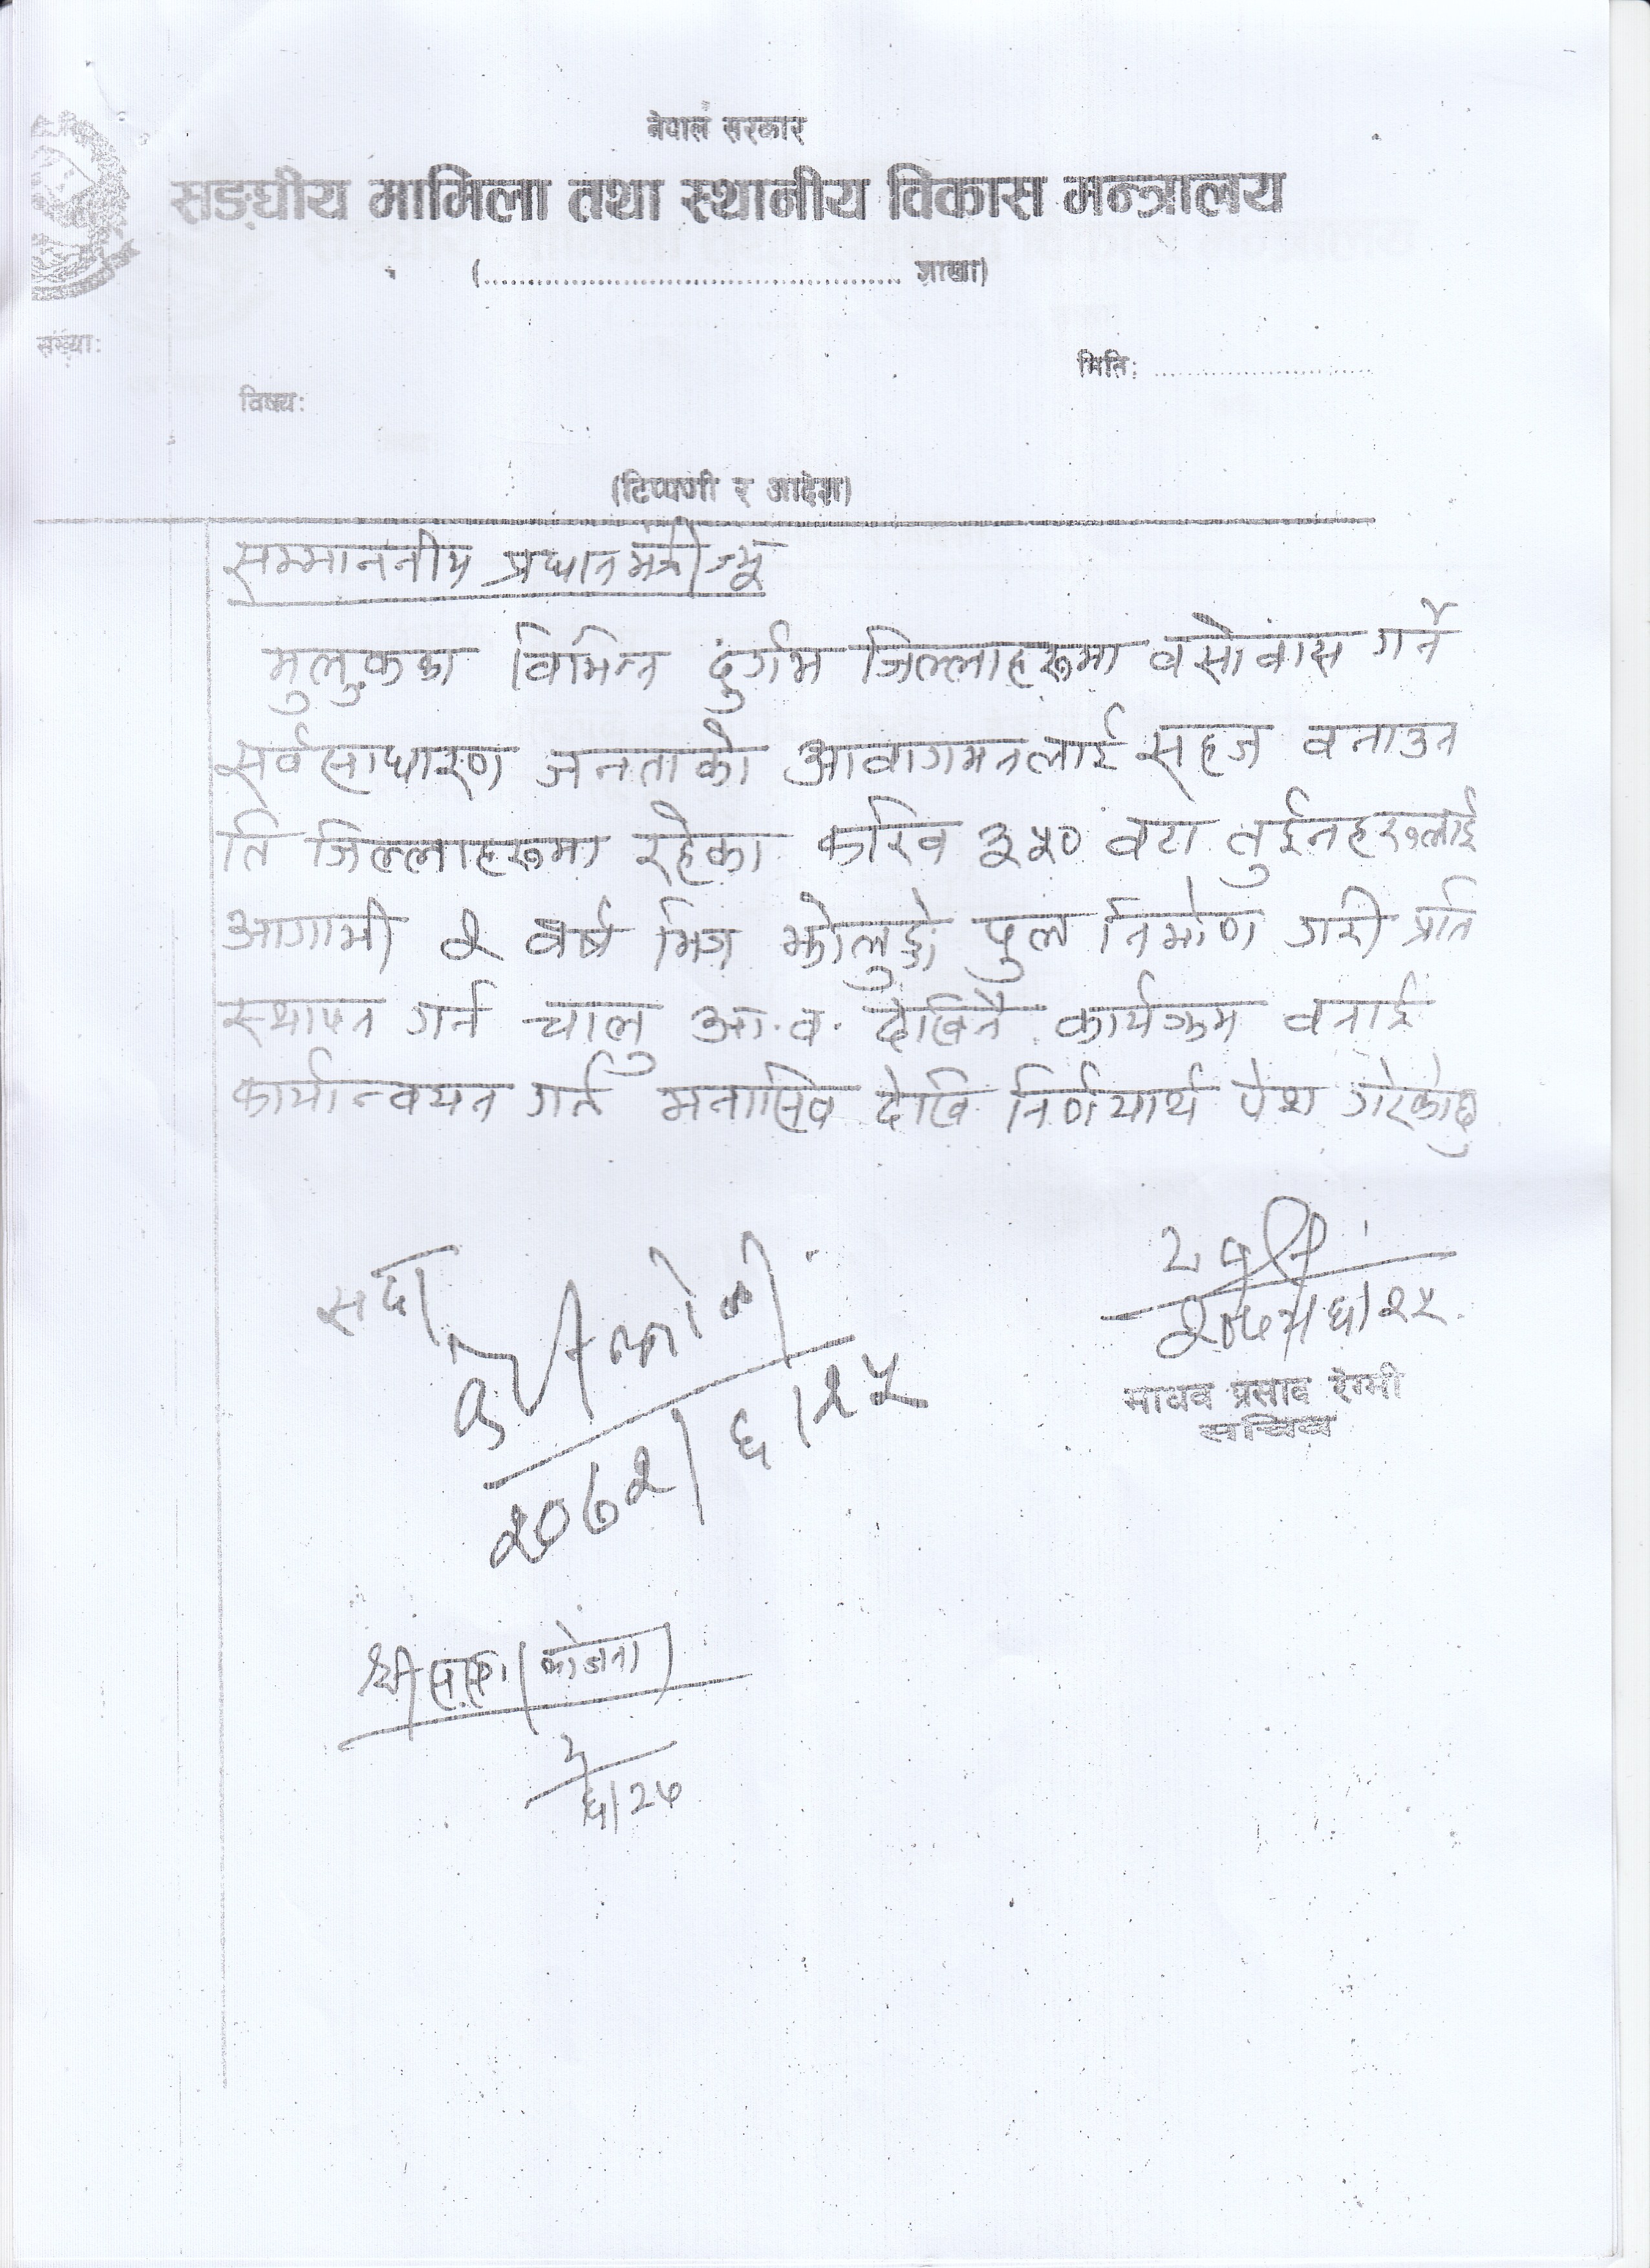 नेपाल सरकार
सङ्घीय मामिला तथा स्थानीय विकास मन्त्रालय
(........................................ शाखा)
संख्या:
मिति: ........................
विषय:
(टिप्पणी र आदेश)
सम्माननीय प्रधानमन्त्रीज्यू
मुलुकका विभिन्न दुर्गम जिल्लाहरूमा वसोवास गर्ने
सर्वसाधारण जनताको आवागमनलाई सहज वनाउन
ति जिल्लाहरूमा रहेका करिव ३५० वटा तुईनहरूलाई
आगामी २ वर्ष भित्र झोलुङ्गे पुल निर्माण गरी प्रति
स्थापन गर्न चालु आ.व. देखिनै कार्यक्रम वनाई
कार्यान्वयन गर्न मनासिव देखि निर्णयार्थ पेश गरेकोछु
सदर
२०७२/६/२५
२०७२/६/२५
माधव प्रसाद रेग्मी
सचिव
श्री
६/२५